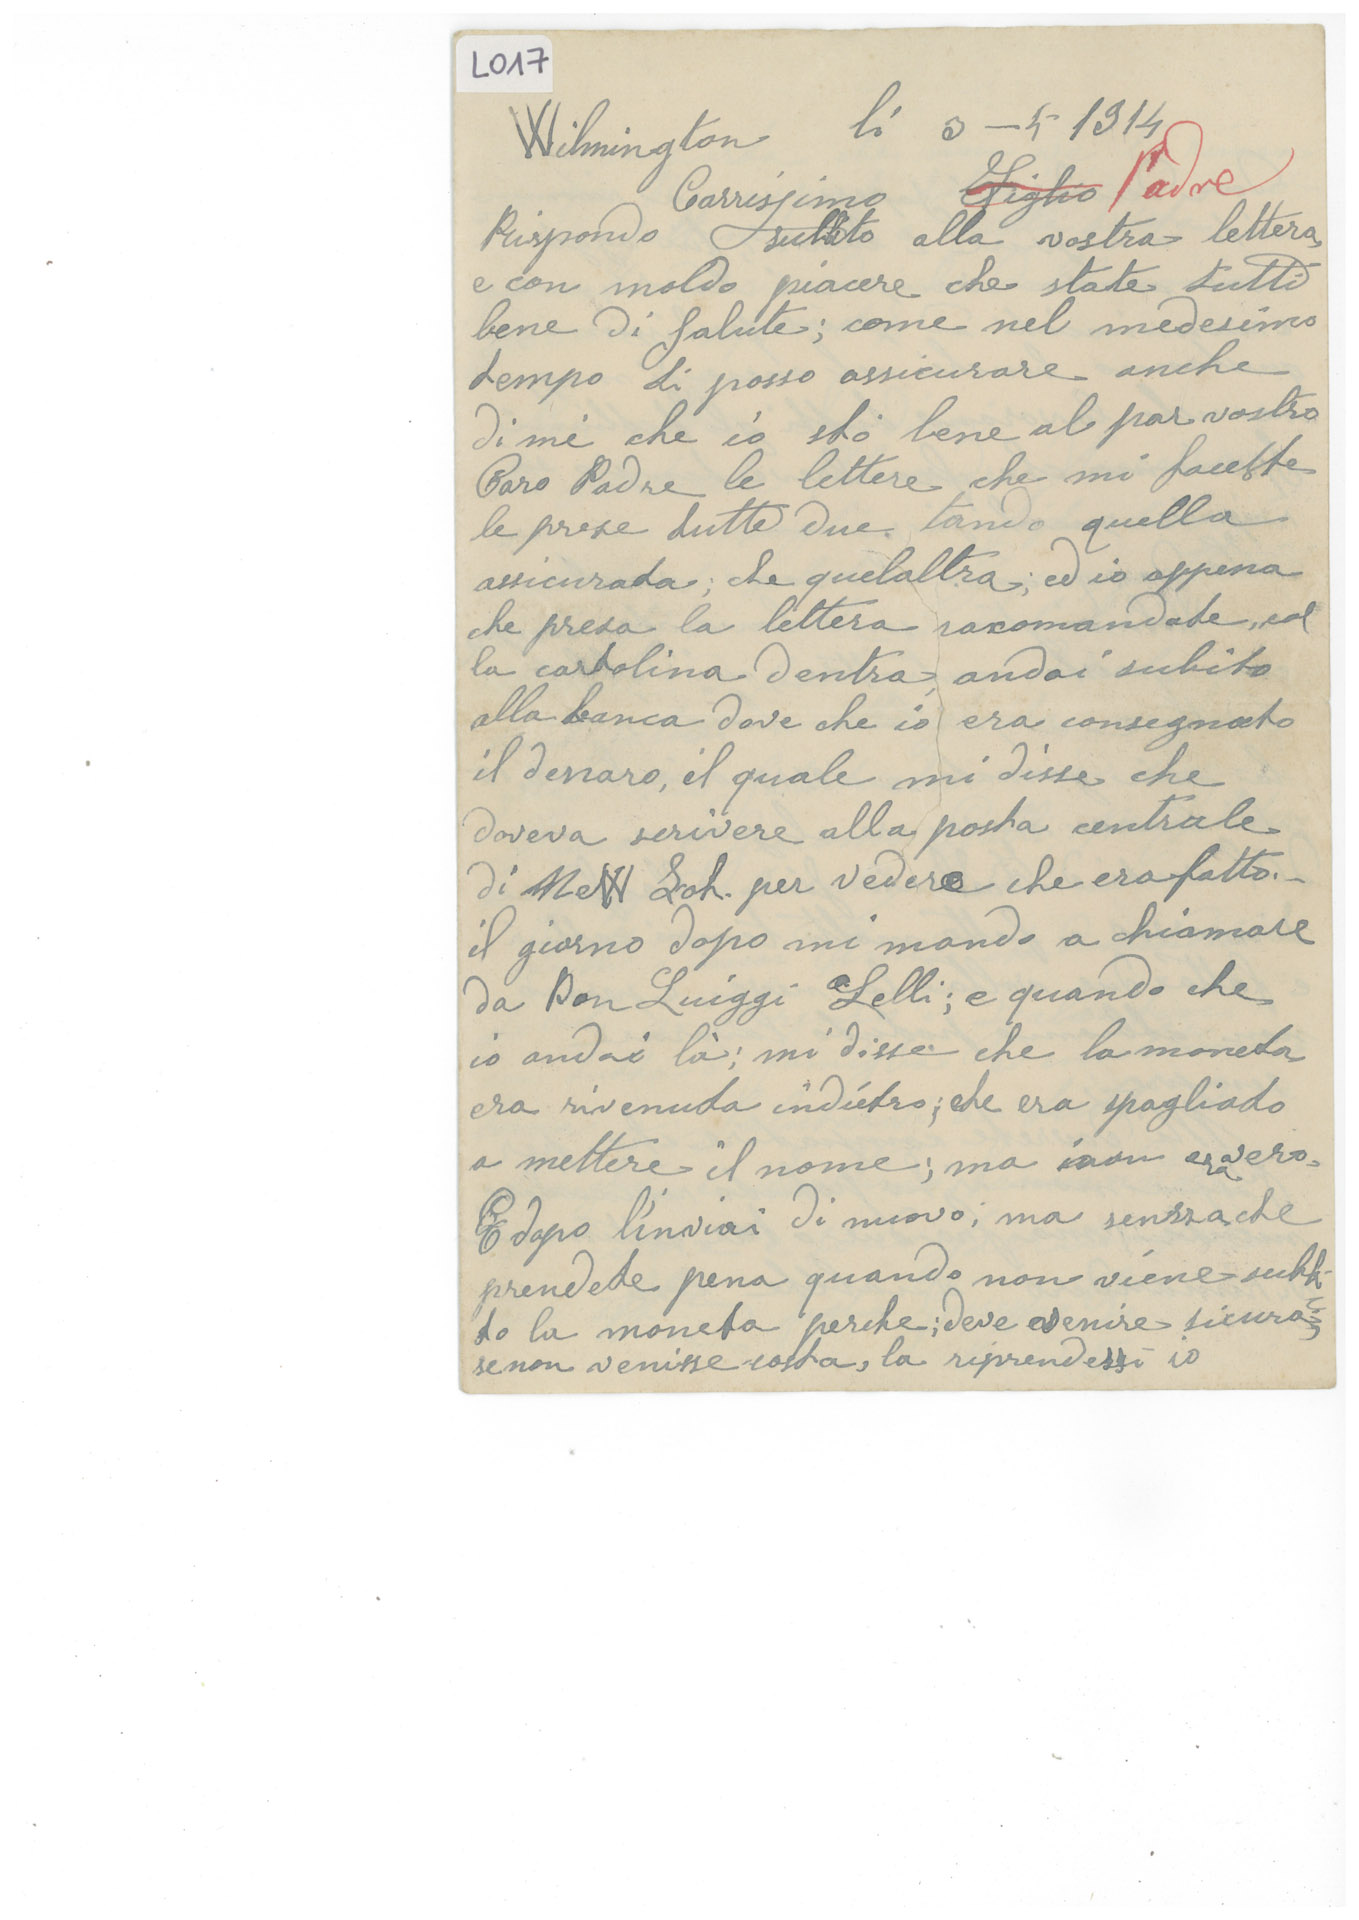 L017
Wilmington lì 3 - 5 1914
Carrissimo Figlio Padre
Rispondo subbito alla vostra lettera
e con moldo piacere che state tutti
bene di salute; come nel medesimo
tempo di posso assicurare anche
di me che io stò bene al par vostro
Caro Padre le lettere che mi faceste
le prese tutte due. tando quella
assicurada; che quelaltra; ed io appena
che presa la lettera racomandate, col
la cartolina dentra, andai subito
alla banca dove che io era consegnato
il denaro, il quale mi disse che
doveva scrivere alla posta centrale
di New per vedere che era fatto.-
il giorno dopo mi mando a chiamare
da Don Luiggi Lelli; e quando che
io andai là; mi disse che la moneta
era rivenuta indietro; che era spagliado
a mettere il nome; ma non era vero.
E dopo l'inviai di nuovo; ma senzza che
prendete pena quando non viene subbi-
to la moneta perche; deve venire sicura
se non venisse costa, la riprendessi io